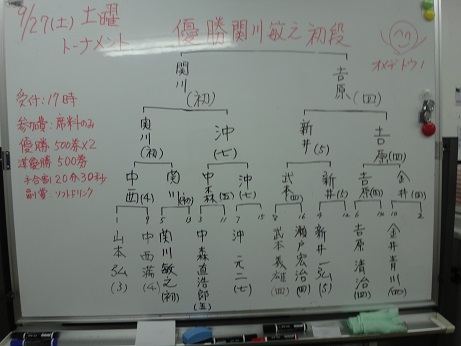 9/27(土) 土曜
トーナメント 優勝 関川敏之 初段
オメデトウ!
関川(初) 吉原(四)
受付:17時
参加費:席料のみ
優勝 500券×2
準優勝 500券
手合割 20分30秒
副賞:ソフトドリンク
関川(初) 沖(七) 新井(5) 吉原(四)
中西(4) 関川(初) 中森(五) 沖(七) 武本(四) 新井(5) 吉原(四) 金井(四)
山本弘(3) 中西満(4) 関川敏之(初) 中森直浩郎(五) 沖元二(七) 武本義雄(四) 瀬戸宏治(四) 新井一弘(5) 吉原清治(四) 金井青川(四)